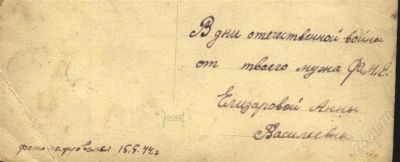 В дни отечественной войны
от твоего мужа Ф.М.Е.
Елизаровой Анны
Васильевны
фотографировался 15.5.44.г